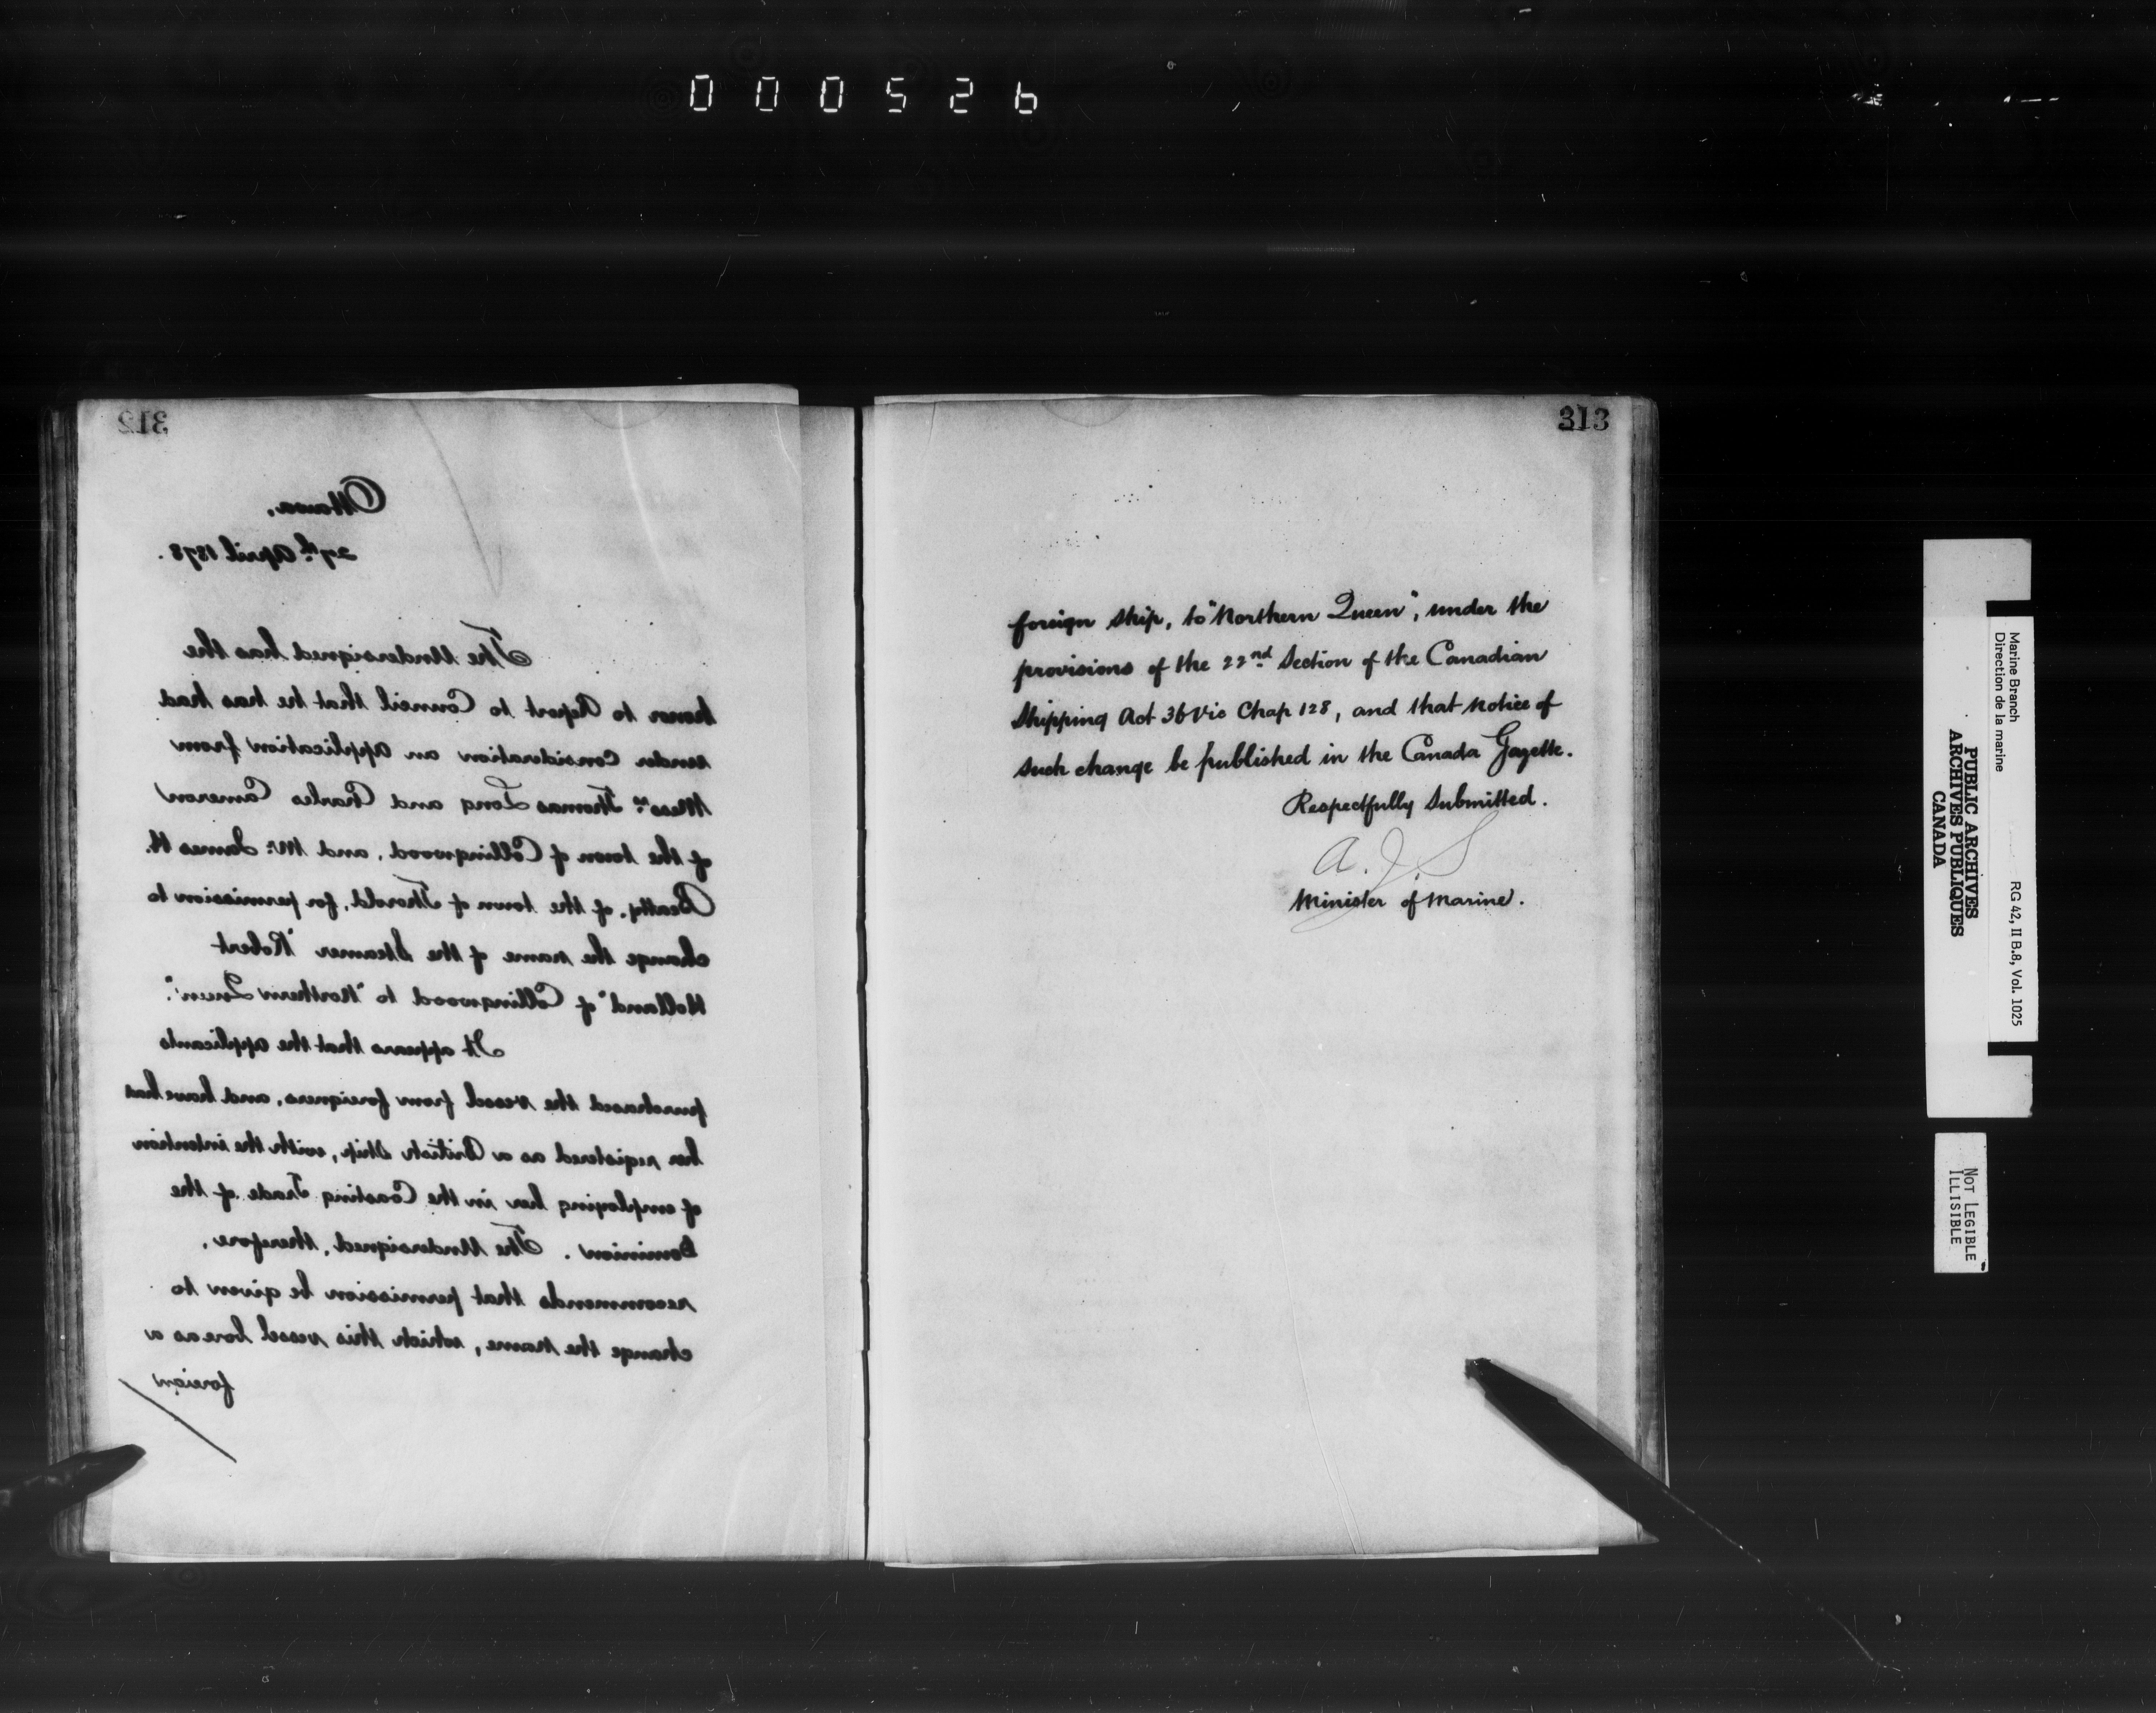 000526
312
Ottawa,
27th April 1878.
The Undersigned has the
honor to Report to Council that he has had
under Consideration an application from
Messrs Thomas Long and Charles Cameron
of the town of Collingwood, and Mr. James H.
Beatty, of the town of Thorold, for permission to
change the name of the Steamer "Robert
Holland" of Collingwood to "Northern Queen".
It appears that the applicants
purchased the vessel from foreigners, and have had
her registered as a British Ship, with the intention
of employing her in the Coasting Trade of the
Dominion. The Undersigned, therefore,
recommends that permission be given to
change the name, which this vessel bore as a
foreign
313
foreign ship, to "Northern Queen", under the
provisions of the 22nd Section of the Canadian
Shipping Act 36 Vic Chap 128, and that notice of
such change be published in the Canada Gazette.
Respectfully Submitted.
A. J. S
Minister of Marine.
Marine Branch RG 42, II B.8, Vol. 1025
Direction de la marine
PUBLIC ARCHIVES
ARCHIVES PUBLIQUES
CANADA
NOT LEGIBLE
ILLISIBLE